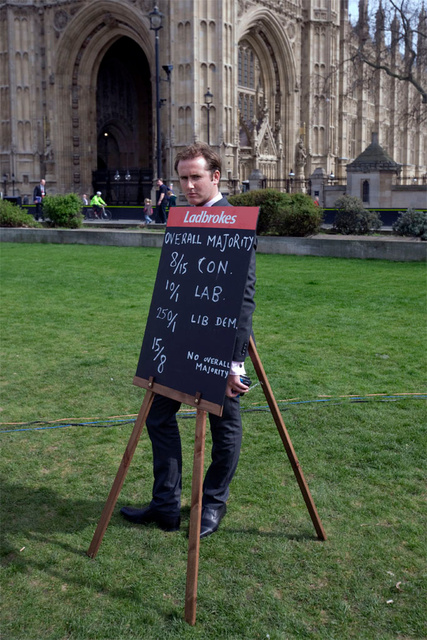 Ladbrokes
OVERALL MAJORITY
8/15 CON.
10/1 LAB.
250/1 LIB DEM.
15/8 NO OVERALL
MAJORITY